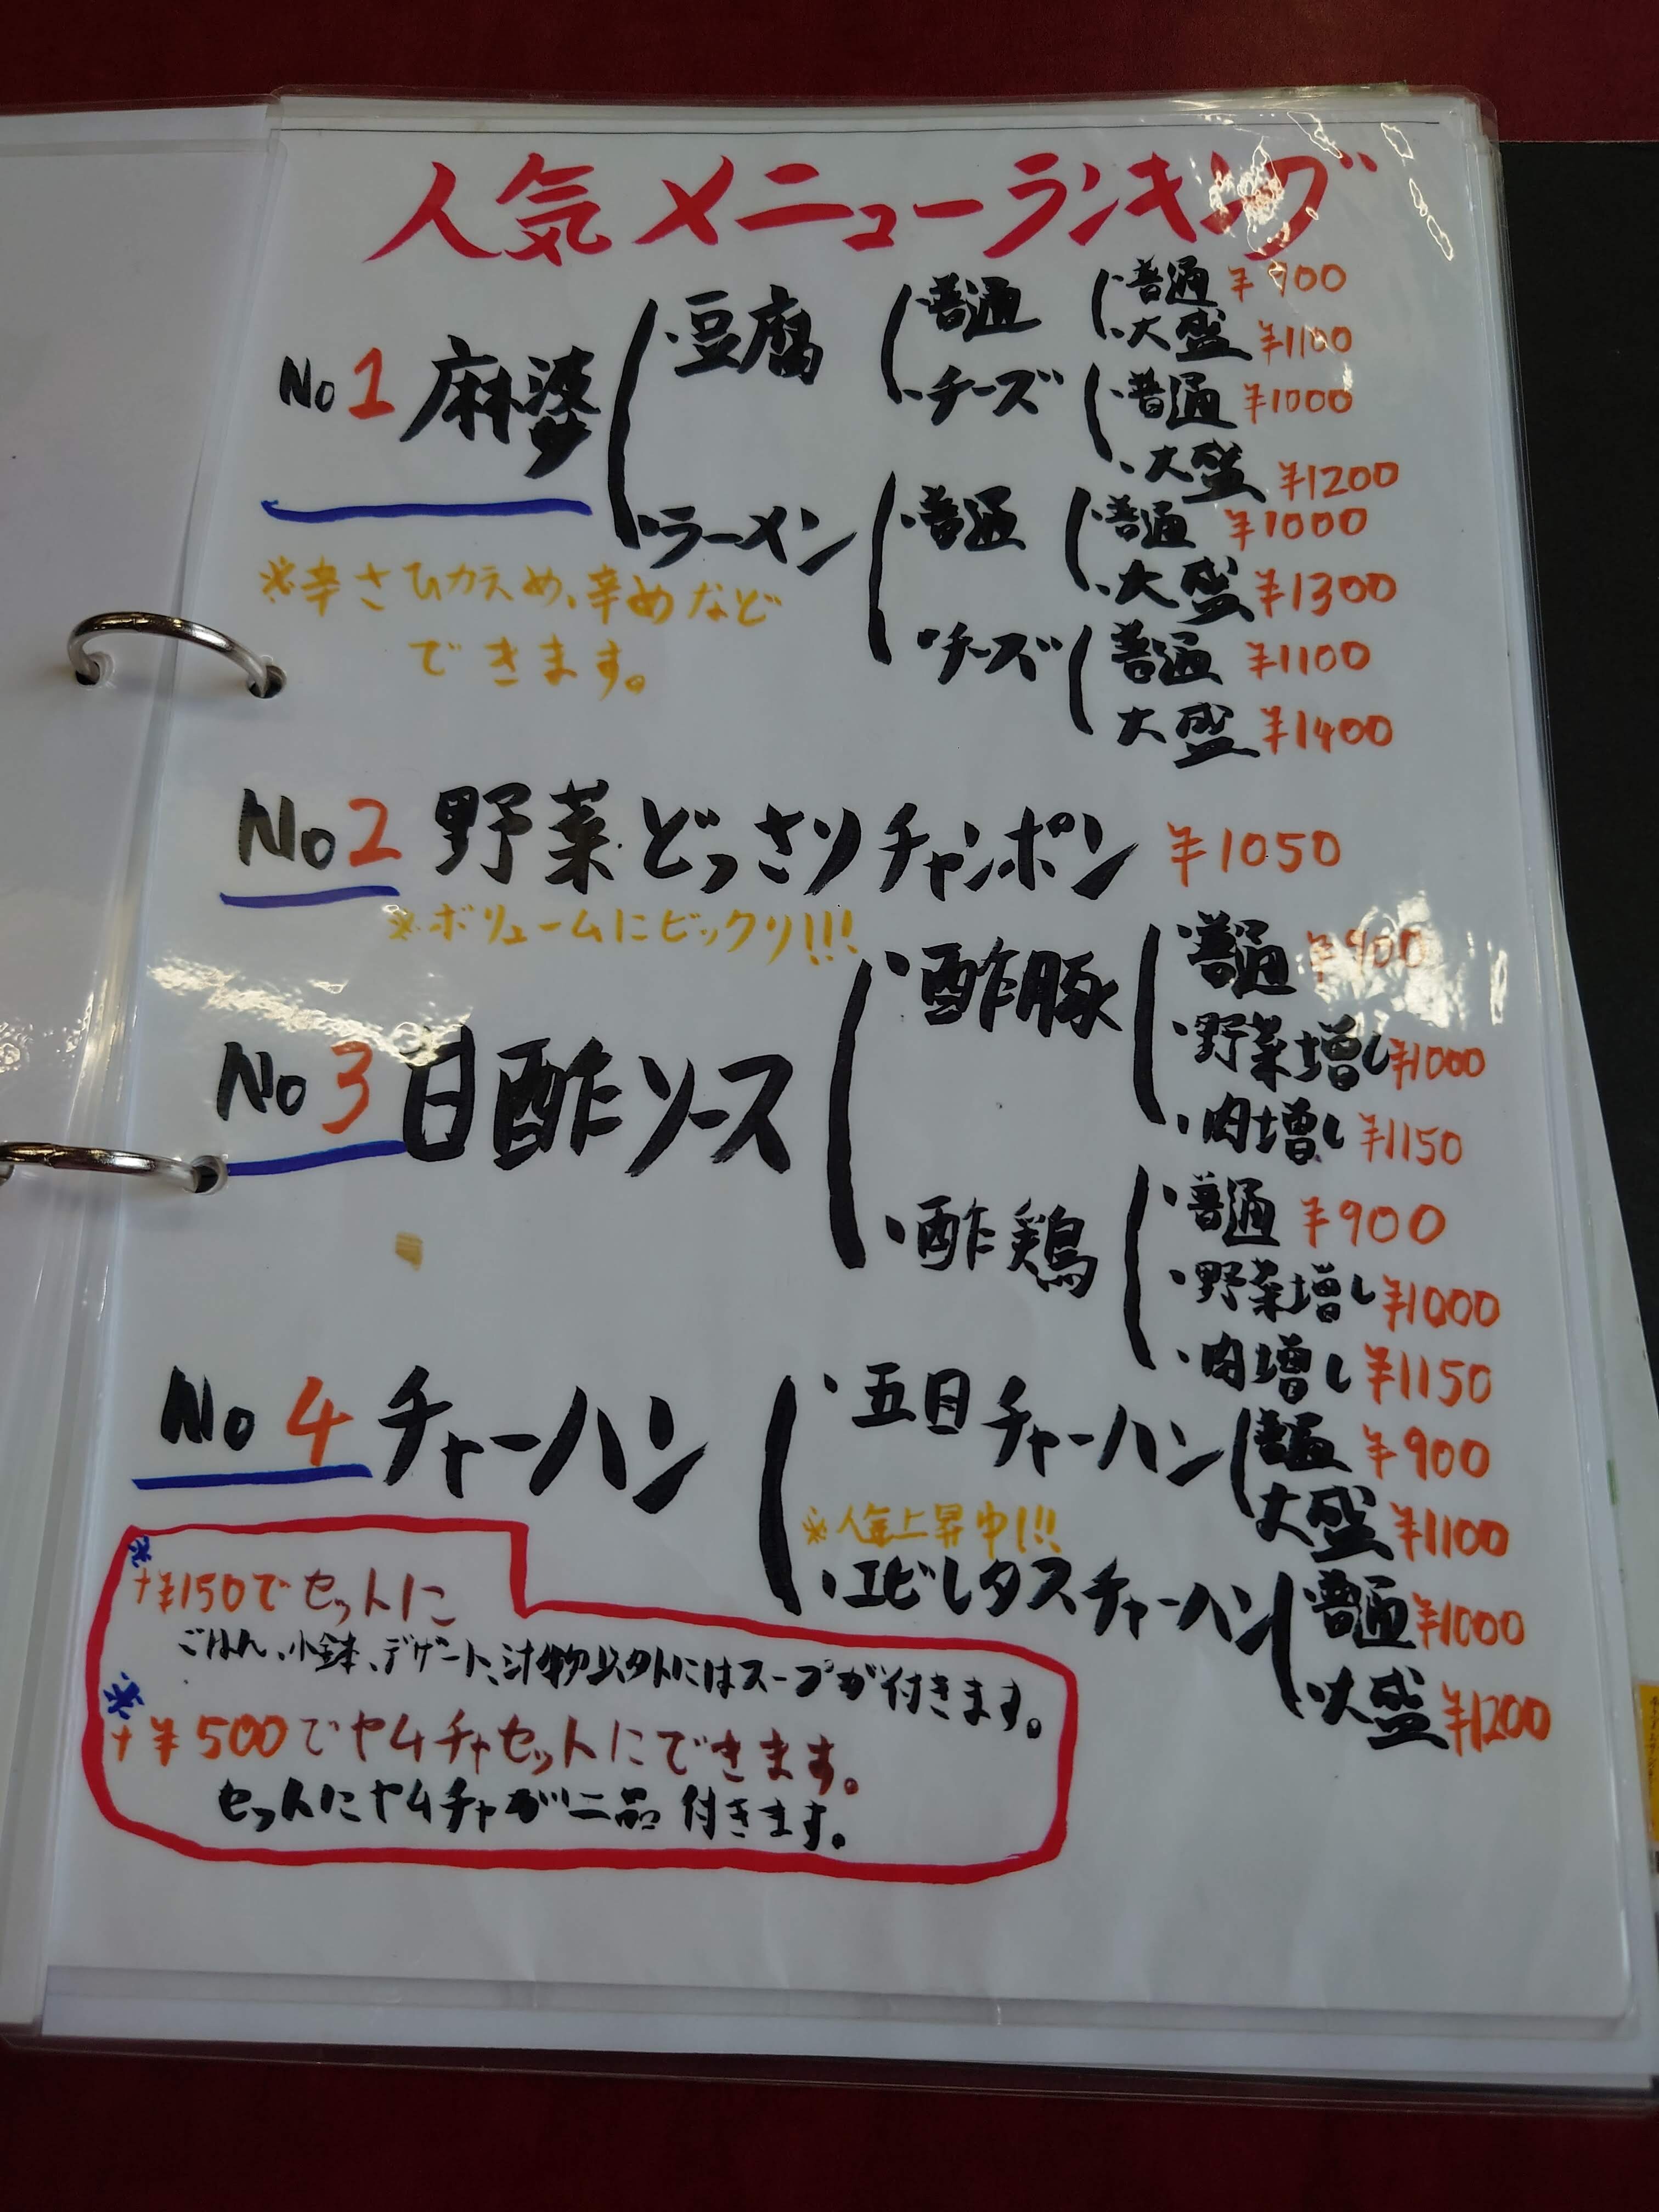 人気メニューランキング
No1 麻婆
・豆腐
・普通
・普通 ¥900
・大盛 ¥1100
・チーズ
・普通 ¥1000
・大盛 ¥1200
・ラーメン
・普通
・普通 ¥1000
・大盛 ¥1300
・チーズ
普通 ¥1100
大盛 ¥1400
※辛さひかえめ、辛めなど
できます。
No2 野菜どっさりチャンポン ¥1050
※ボリュームにビックリ!!!
No3 甘酢ソース
・酢豚
・普通 ¥900
・野菜増し ¥1000
・肉増し ¥1150
・酢鶏
・普通 ¥900
・野菜増し ¥1000
・肉増し ¥1150
No4 チャーハン
・五目チャーハン
普通 ¥900
大盛 ¥1100
※人気上昇中!!!
・エビレタスチャーハン
・普通 ¥1000
・大盛 ¥1200
※
+¥150でセットに
ごはん、小鉢、デザート、汁物以外にはスープが付きます。
※
+¥500でヤムチャセットにできます。
セットにヤムチャが二品付きます。